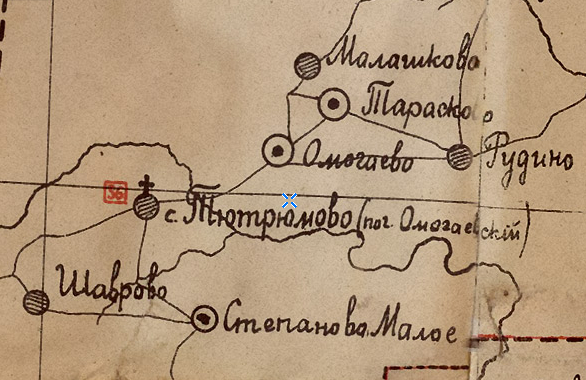 Малашково
Тарасково
Омогаево
Рудино
36
с. Тютрюмово (пог. Омогаевскій)
Шаврово
Степаново Малое